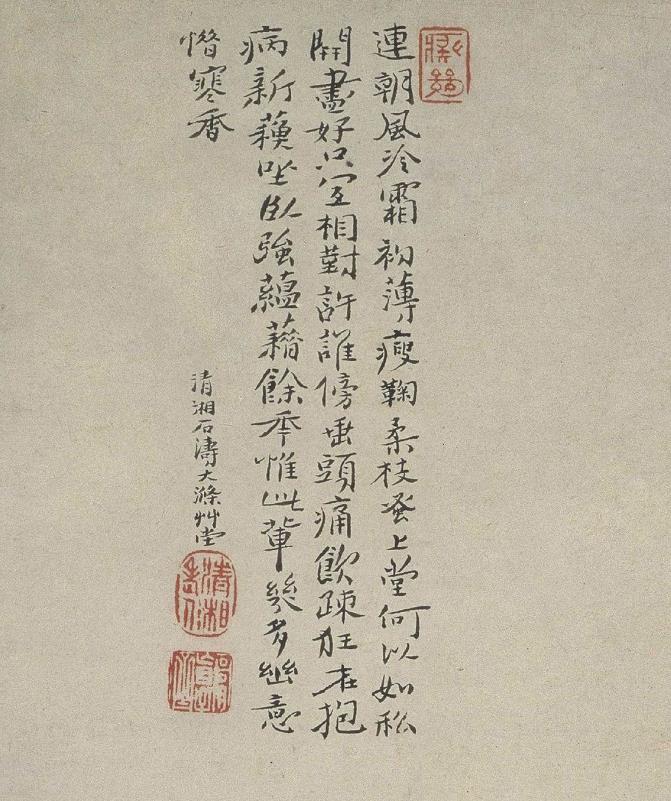 連朝風冷霜初薄瘦鞠柔枝蚤上堂何以如松
開盡好只宜相對許誰傍垂頭痛飲疎狂在抱
病新蘓坐臥強蘊藉餘年惟此輩幾多幽意
惜寒香
清湘石濤大滌艸堂
清湘老人